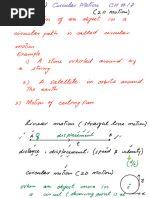 Circular Motion CH # 12
(2D motion)
motion of an object in a
circular path is called circular
motion
Example
1) A stone whirled around by
a string
2) A satellite in orbits around
The earth
3) Motion of ceiling fan
linear motion (straight line motion)
displacement
distance, displacement, (speed & velocity)
circular motion (2D motion)
when an object moves in
a